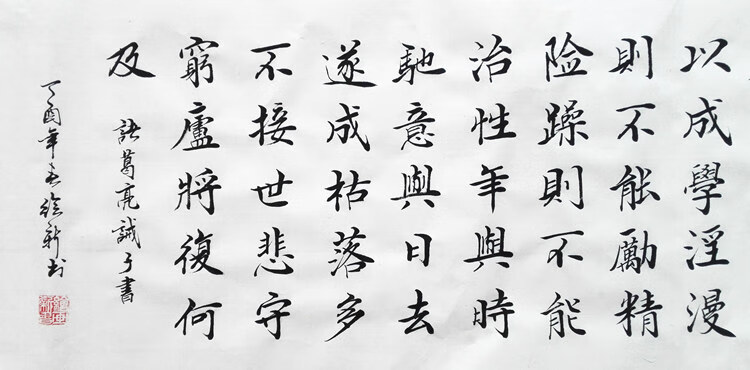 以成學淫漫
則不能勵精
险躁則不能
治性年與時
馳意與日去
遂成枯落多
不接世悲守
窮廬將復何
及
諸葛亮誡子書
丁酉年春新书